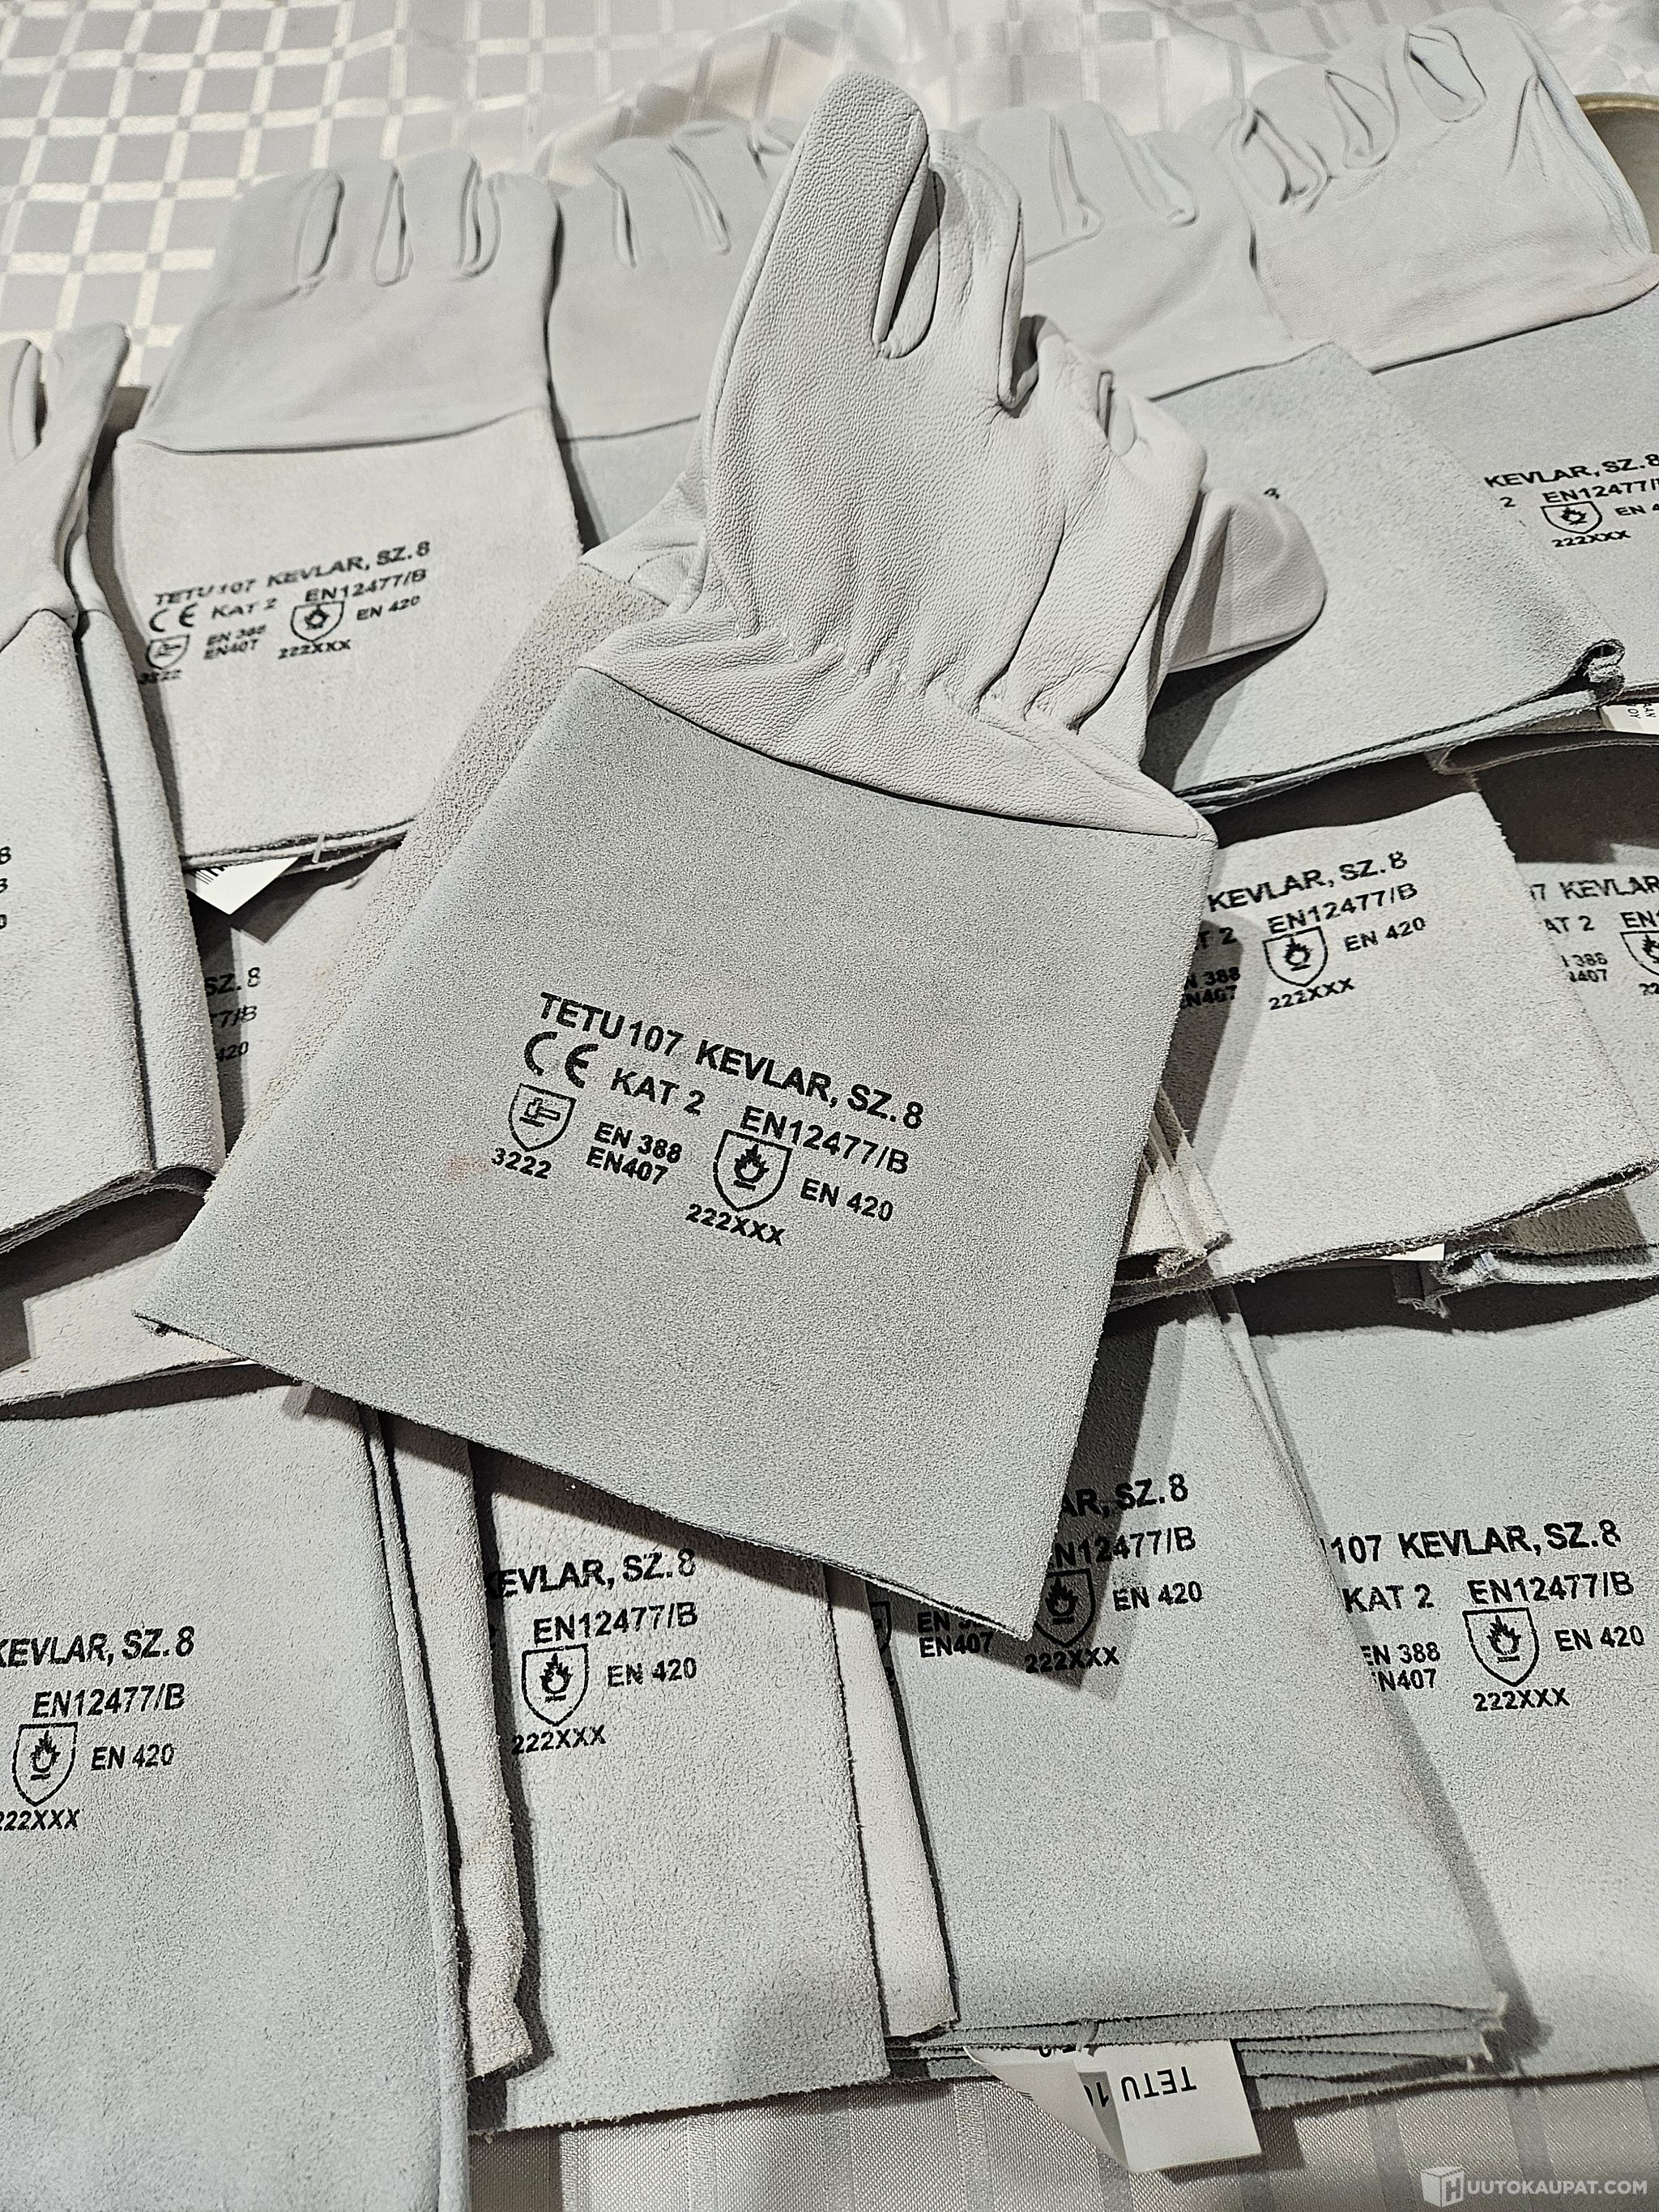 KEVLAR, SZ. 8
2 EN12477/
EN 4
222XXX
TETU 107 KEVLAR, SZ. 8
CE KAT 2 EN12477/B
EN 388
EN407
EN 420
3222
222XXX
KEVLAR, SZ. 8
T 2 EN12477/B
N 388
EN407
EN 420
222XXX
7 KEVLAR
AT 2 EN1
388
407
22
SZ. 8
77/B
420
TETU 107 KEVLAR, SZ. 8
CE KAT 2 EN12477/B
EN 388
EN407
EN 420
3222
222XXX
AR, SZ. 8
N12477/B
EN 420
EN407
222XXX
107 KEVLAR, SZ. 8
KAT 2 EN12477/B
EN 388
N407
EN 420
222XXX
KEVLAR, SZ. 8
EN12477/B
EN 420
222XXX
KEVLAR, SZ. 8
EN12477/B
EN 420
222XXX
TETU 10
HUUTOKAUPAT.COM